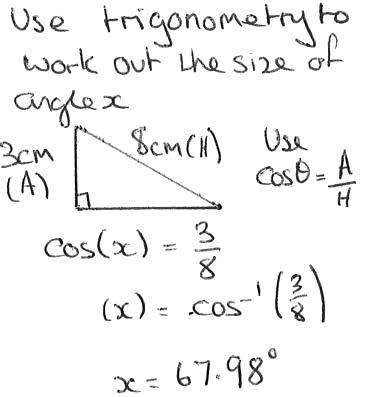 Use trigonometry to
work out the size of
angle x
3cm
(A)
8cm(H)
Use
cosθ = A/H
cos(x) = 3/8
(x) = cos⁻¹(3/8)
x = 67.98°